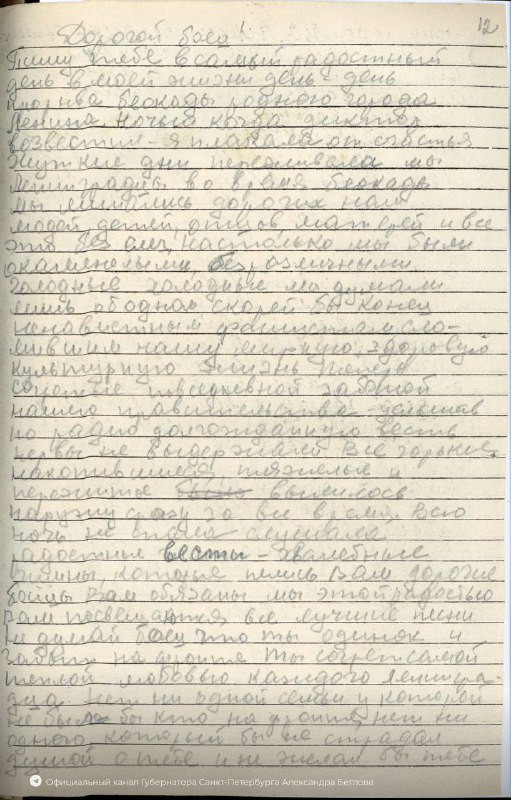 12
Дорогой боец!
Пишу тебе в самый радостный
день в моей жизни день - день
прорыва блокады родного города
Ленина. Ночью когда диктор
возвестил - я плакала от счастья
Жуткие дни переживали мы
Ленинградцы во время блокады
мы лишились дорогих нам
людей детей, отцов, матерей и все
это без слез, настолько мы были
окаменелыми, безразличными
голодные холодные мы думали
лишь об одном скорей бы конец
ненавистным фашистам сло-
мившим нашу мирную, здоровую
культурную жизнь. Теперь
согретые повседневной заботой
нашего правительства - услышав
по радио долгожданную весть
нервы не выдержали Все горькие,
накопившиеся, тяжелые и
пережитые вылилось
наружу сразу за все время. Всю
ночь не спала слушала
радостные вести - хвалебные
гимны, которые пелись Вам дорогие
бойцы Вам обязаны мы этой радостью
Вам посвещаются все лучшие песни
Не думай боец что ты одинок и
забыт на фронте ты согрет самой
теплой любовью каждого ленингра-
дца. Нет ни одной семьи у которой
не было бы кто на фронте, нет ни
одного который бы не страдал
душой о тебе и не желал бы тебе
Официальный канал Губернатора Санкт-Петербурга Александра Беглова